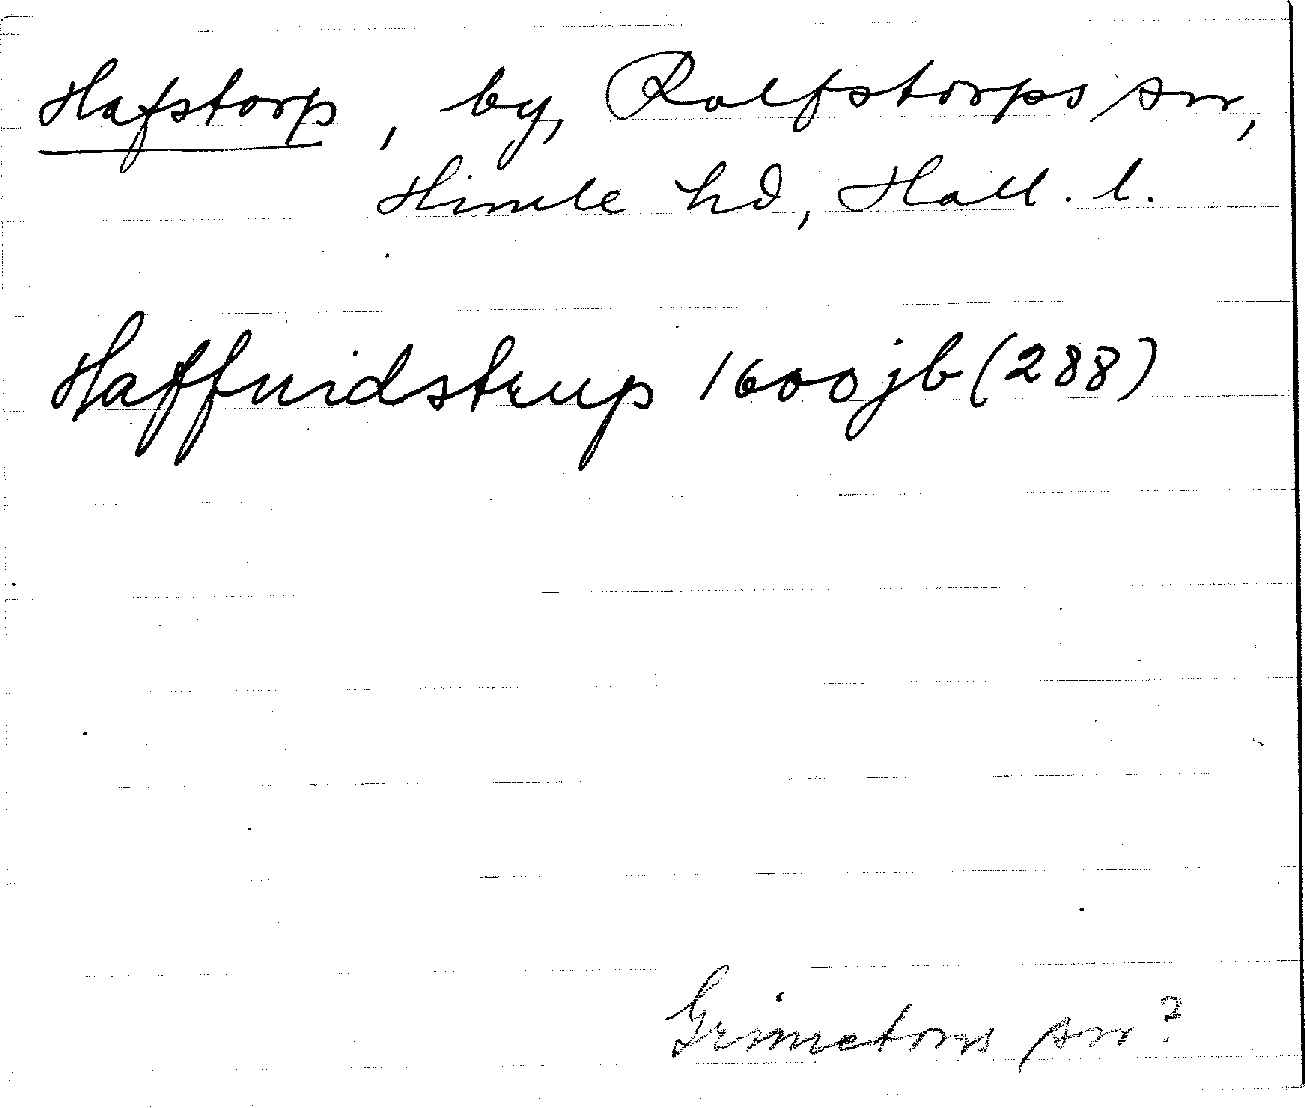 Hafstorp, by, Rolfstorps sn,
Himle hd, Hall. l.
Haffuidstrup 1600 jb (288)
Grimetons sn?